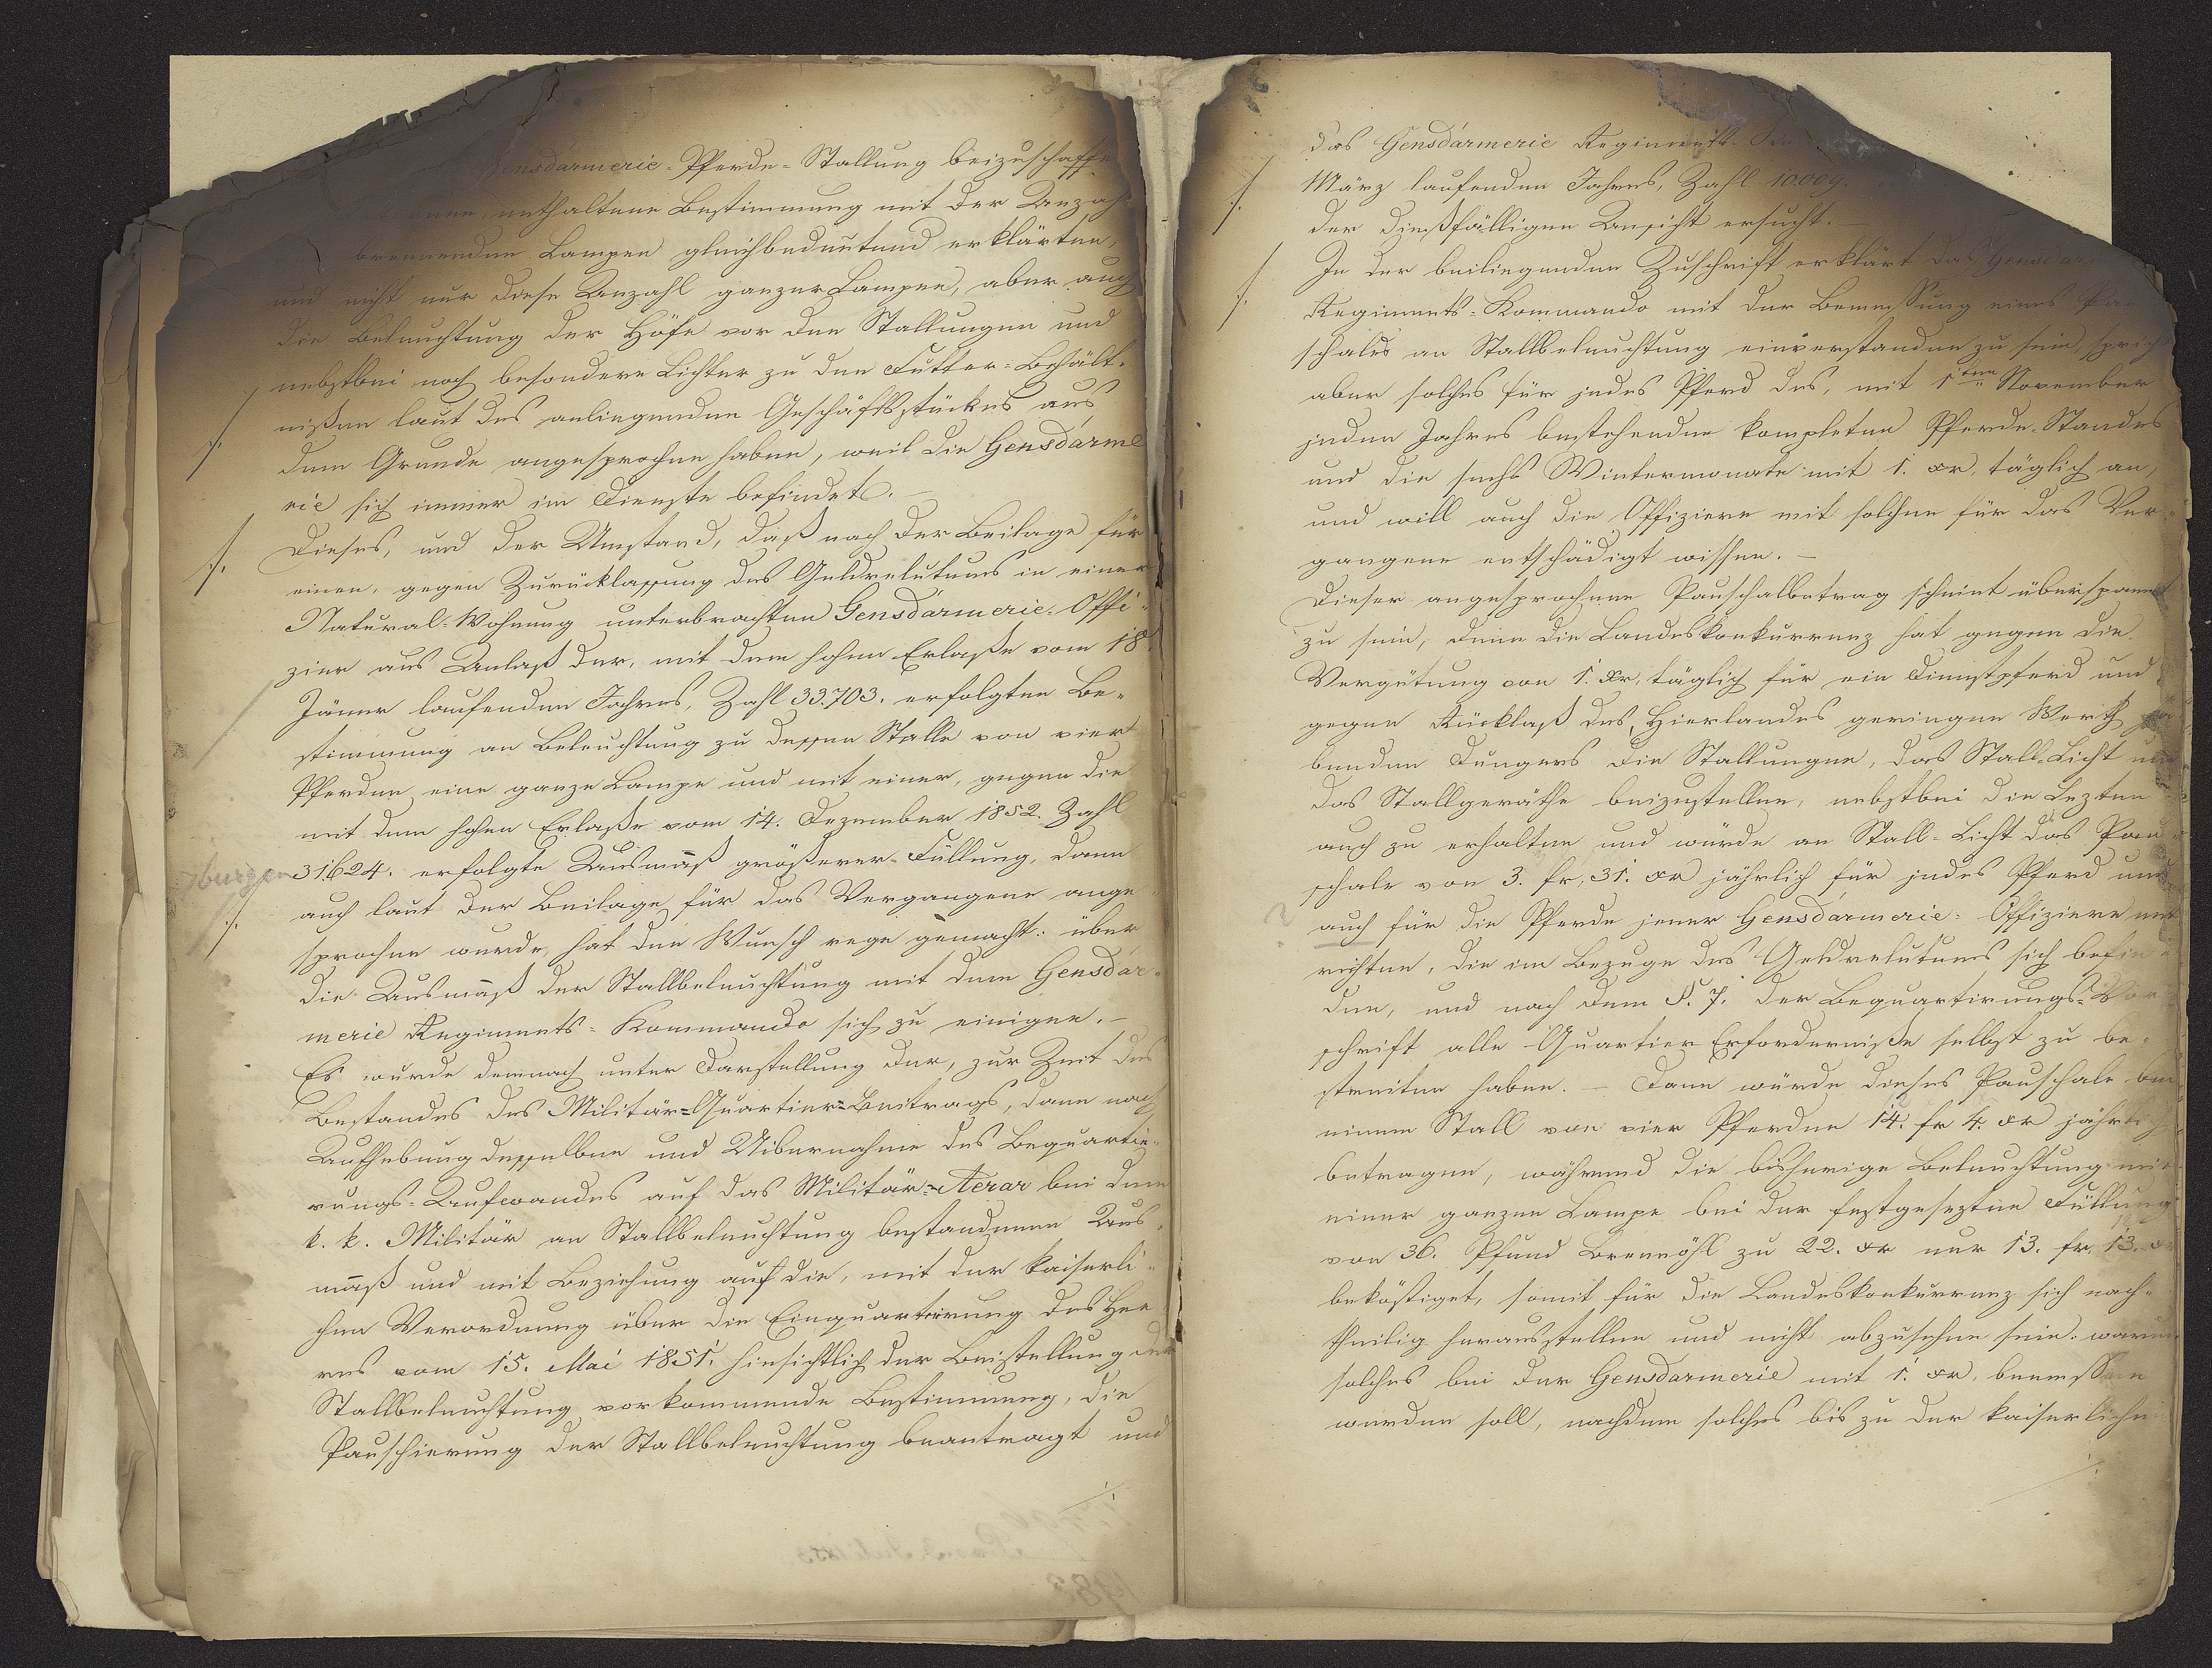 ensdarmerie-Pferde-Stallung beizuschaffe
enthaltene Bestimmung mit der Anzah
brennenden Lampen gleichbedeutend erklärten,
und nicht nur diese Anzahl ganzer Lampen, aber auch
die Beleuchtung der Höfe vor den Stallungen und
nebstbei noch besondere Lichter zu den Futter-Behält-
nißen laut des anliegenden Geschäftsstückes aus
dem Grunde angesprochen haben, weil die Gensdarme
rie sich immer im Dienste befindet. –
Dieses, und der Umstand, daß nach der Beilage für
einen, gegen Zurücklassung des Geldrelutums in einer
Natural-Wohnung unterbrachten Gensdarmerie-Offi-
zier aus Anlaß der, mit dem hohen Erlaße vom 18.
Jänner laufenden Jahres, Zahl 33.703. erfolgten Be-
stimmung an Beleuchtung zu dessen Stalle von vier
Pferden eine ganze Lampe und mit einer, gegen die
mit dem hohen Erlaße vom 14. Dezember 1852. Zahl
31624. erfolgte Ausmaß größerer Füllung, dann
auch laut der Beilage für das Vergangene ange-
sprochen wurde, hat den Wunsch rege gemacht: über
die Ausmaß der Stallbeleuchtung mit dem Gensdar-
merie Regiments-Kommando sich zu einigen. –
Es wurde demnach unter Darstellung der, zur Zeit des
Bestandes des Militär-Quartier-Beitrags, dann nach
Aufhebung desselben und Uibernahme des Bequartie-
rungs-Aufwandes auf das Militär-Aerar bei dem
k. k. Militär an Stallbeleuchtung bestandenen Aus-
maß und mit Beziehung auf die, mit der kaiserli-
chen Verordnung über die Einquartirung des Hee-
res vom 15. Mai 1851. hinsichtlich der Beistellung der
Stallbeleuchtung vorkommende Bestimmung, die
Pauschierung der Stallbeleuchtung beantragt und
das Gensdarmerie Regiments
März laufenden Jahres, Zahl 10.009.
der dießfälligen Ansicht ersucht.
In der beiliegenden Zuschrift erklärt das Gensdar
Regiments-Kommando mit der Bemessung eines Pau
schales an Stallbeleuchtung einverstanden zu sein, sprich
aber solches für jedes Pferd des, mit 1ten November
jeden Jahres bestehenden kompleten Pferde-Standes
und die sechs Wintermonate mit 1. xr. täglich an,
und will auch die Offiziere mit solchen für das Ver-
gangene entschädigt wissen. –
Dieser angesprochene Pauschalbetrag scheint überspannt
zu sein, denn die Landeskonkurrenz hat gegen die
Vergütung von 1. xr. täglich für ein Dienstpferd und
gegen Rücklaß des, Hierlandes geringen Werth ha
benden Dungers die Stallungen, das Stall-Licht und
das Stallgeräthe beizustellen, nebstbei die Lezten
auch zu erhalten und würde an Stall-Licht das Pau-
schale von 3. fr. 31. xr jährlich für jedes Pferd und
auch für die Pferde jener Gensdarmerie-Offiziere ent
richten, die im Bezuge des Geldrelutums sich befin-
den, und nach dem §. 7. der Bequartirungs-Vor
schrift alle Quartier Erforderniße selbst zu be-
streiten haben. – Dann würde dieses Pauschale bei
einem Stall von vier Pferden 14. fr 4. xr jährlich
betragen, während die bisherige Beleuchtung mit
einer ganzen Lampe bei der festgesezten Füllung
von 36. Pfund Brennöhl zu 22. xr nur 13. fr. 13. x
beköstiget, somit für die Landeskonkurrenz sich nach-
theilig herausstellen und nicht abzusehen sein: warum
solches bei der Gensdarmerie mit 1. xr. bemessen
werden soll, nachdem solches bis zu der kaiserlichen